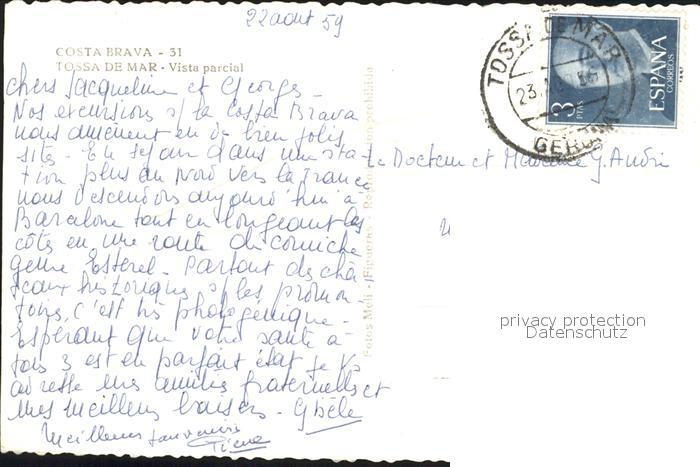 22 aout 59
COSTA BRAVA - 31
TOSSA DE MAR - Vista parcial
chers Jacqueline et Georges -
Nos excursions s/ la Costa Brava
nous amènent en de bien jolis
sites. En séjour dans une sta-
tion plus au Nord vers la France
nous descendons aujourd'hui à
Barcelone tout en longeant les
côtes en une route de corniche
genre Esterel. Partout des châ-
teaux historiques s/ les promon-
toires, c'est très photogénique -
Espérant que votre santé à
tous 3 est en parfait état je Vs
adresse mes amitiés fraternelles et
mes meilleurs baisers - Gisèle
Meilleurs souvenirs
Pierre
Le Docteur et Madame G. André
Fotos Meli - Figueras - Reproducción prohibida
TOSSA DE MAR
23
GERONA
3
PTAS
ESPAÑA
CORREOS
privacy protection
Datenschutz